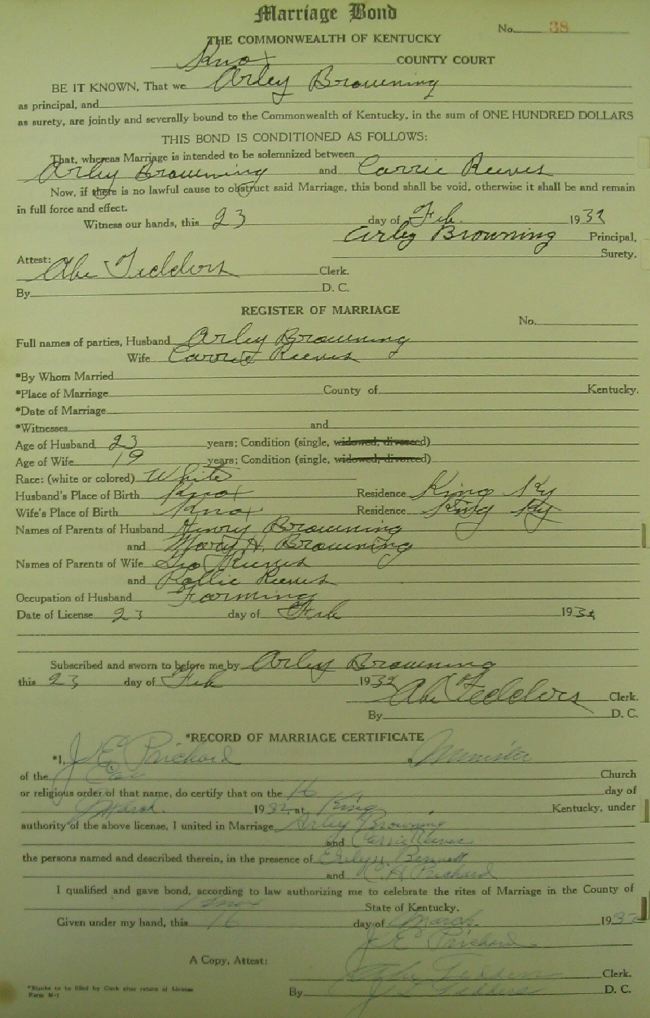 Marriage Bond
No. 38
THE COMMONWEALTH OF KENTUCKY
Knox COUNTY COURT
BE IT KNOWN, That we Arley Browning
as principal, and
as surety, are jointly and severally bound to the Commonwealth of Kentucky, in the sum of ONE HUNDRED DOLLARS
THIS BOND IS CONDITIONED AS FOLLOWS:
That, whereas Marriage is intended to be solemnized between
Arley Browning and Carrie Reeves
Now, if there is no lawful cause to obstruct said Marriage, this bond shall be void, otherwise it shall be and remain
in full force and effect.
Witness our hands, this 23 day of Feb. 1932
Arley Browning Principal,
Surety.
Attest:
Abe Fedders Clerk.
By D. C.
REGISTER OF MARRIAGE
No.
Full names of parties, Husband Arley Browning
Wife Carrie Reeves
*By Whom Married
*Place of Marriage County of Kentucky.
*Date of Marriage
*Witnesses and
Age of Husband 23 years; Condition (single, widowed, divorced)
Age of Wife 19 years; Condition (single, widowed, divorced)
Race: (white or colored) White
Husband's Place of Birth Knox Residence King Ky
Wife's Place of Birth Knox Residence King Ky
Names of Parents of Husband Henry Browning
and Mary H. Browning
Names of Parents of Wife Geo Reeves
and Reeves
Occupation of Husband Farming
Date of License 23 day of Feb 1932
Subscribed and sworn to before me by Arley Browning
this 23 day of Feb 1932
Abe Fedders Clerk.
By D. C.
*RECORD OF MARRIAGE CERTIFICATE
*I, J. E. Prichard Minister
of the Church
or religious order of that name, do certify that on the 16 day of
March 1932, at King Kentucky, under
authority of the above license, I united in Marriage Arley Browning
and Carrie Reeves
the persons named and described therein, in the presence of Bennett
and C. R. Prichard
I qualified and gave bond, according to law authorizing me to celebrate the rites of Marriage in the County of
Knox State of Kentucky.
Given under my hand, this 16 day of March 1932
J. E. Prichard
A Copy, Attest:
Abe Fedders Clerk.
By Fedders D. C.
*Blanks to be filled by Clerk after return of License
Form M-1